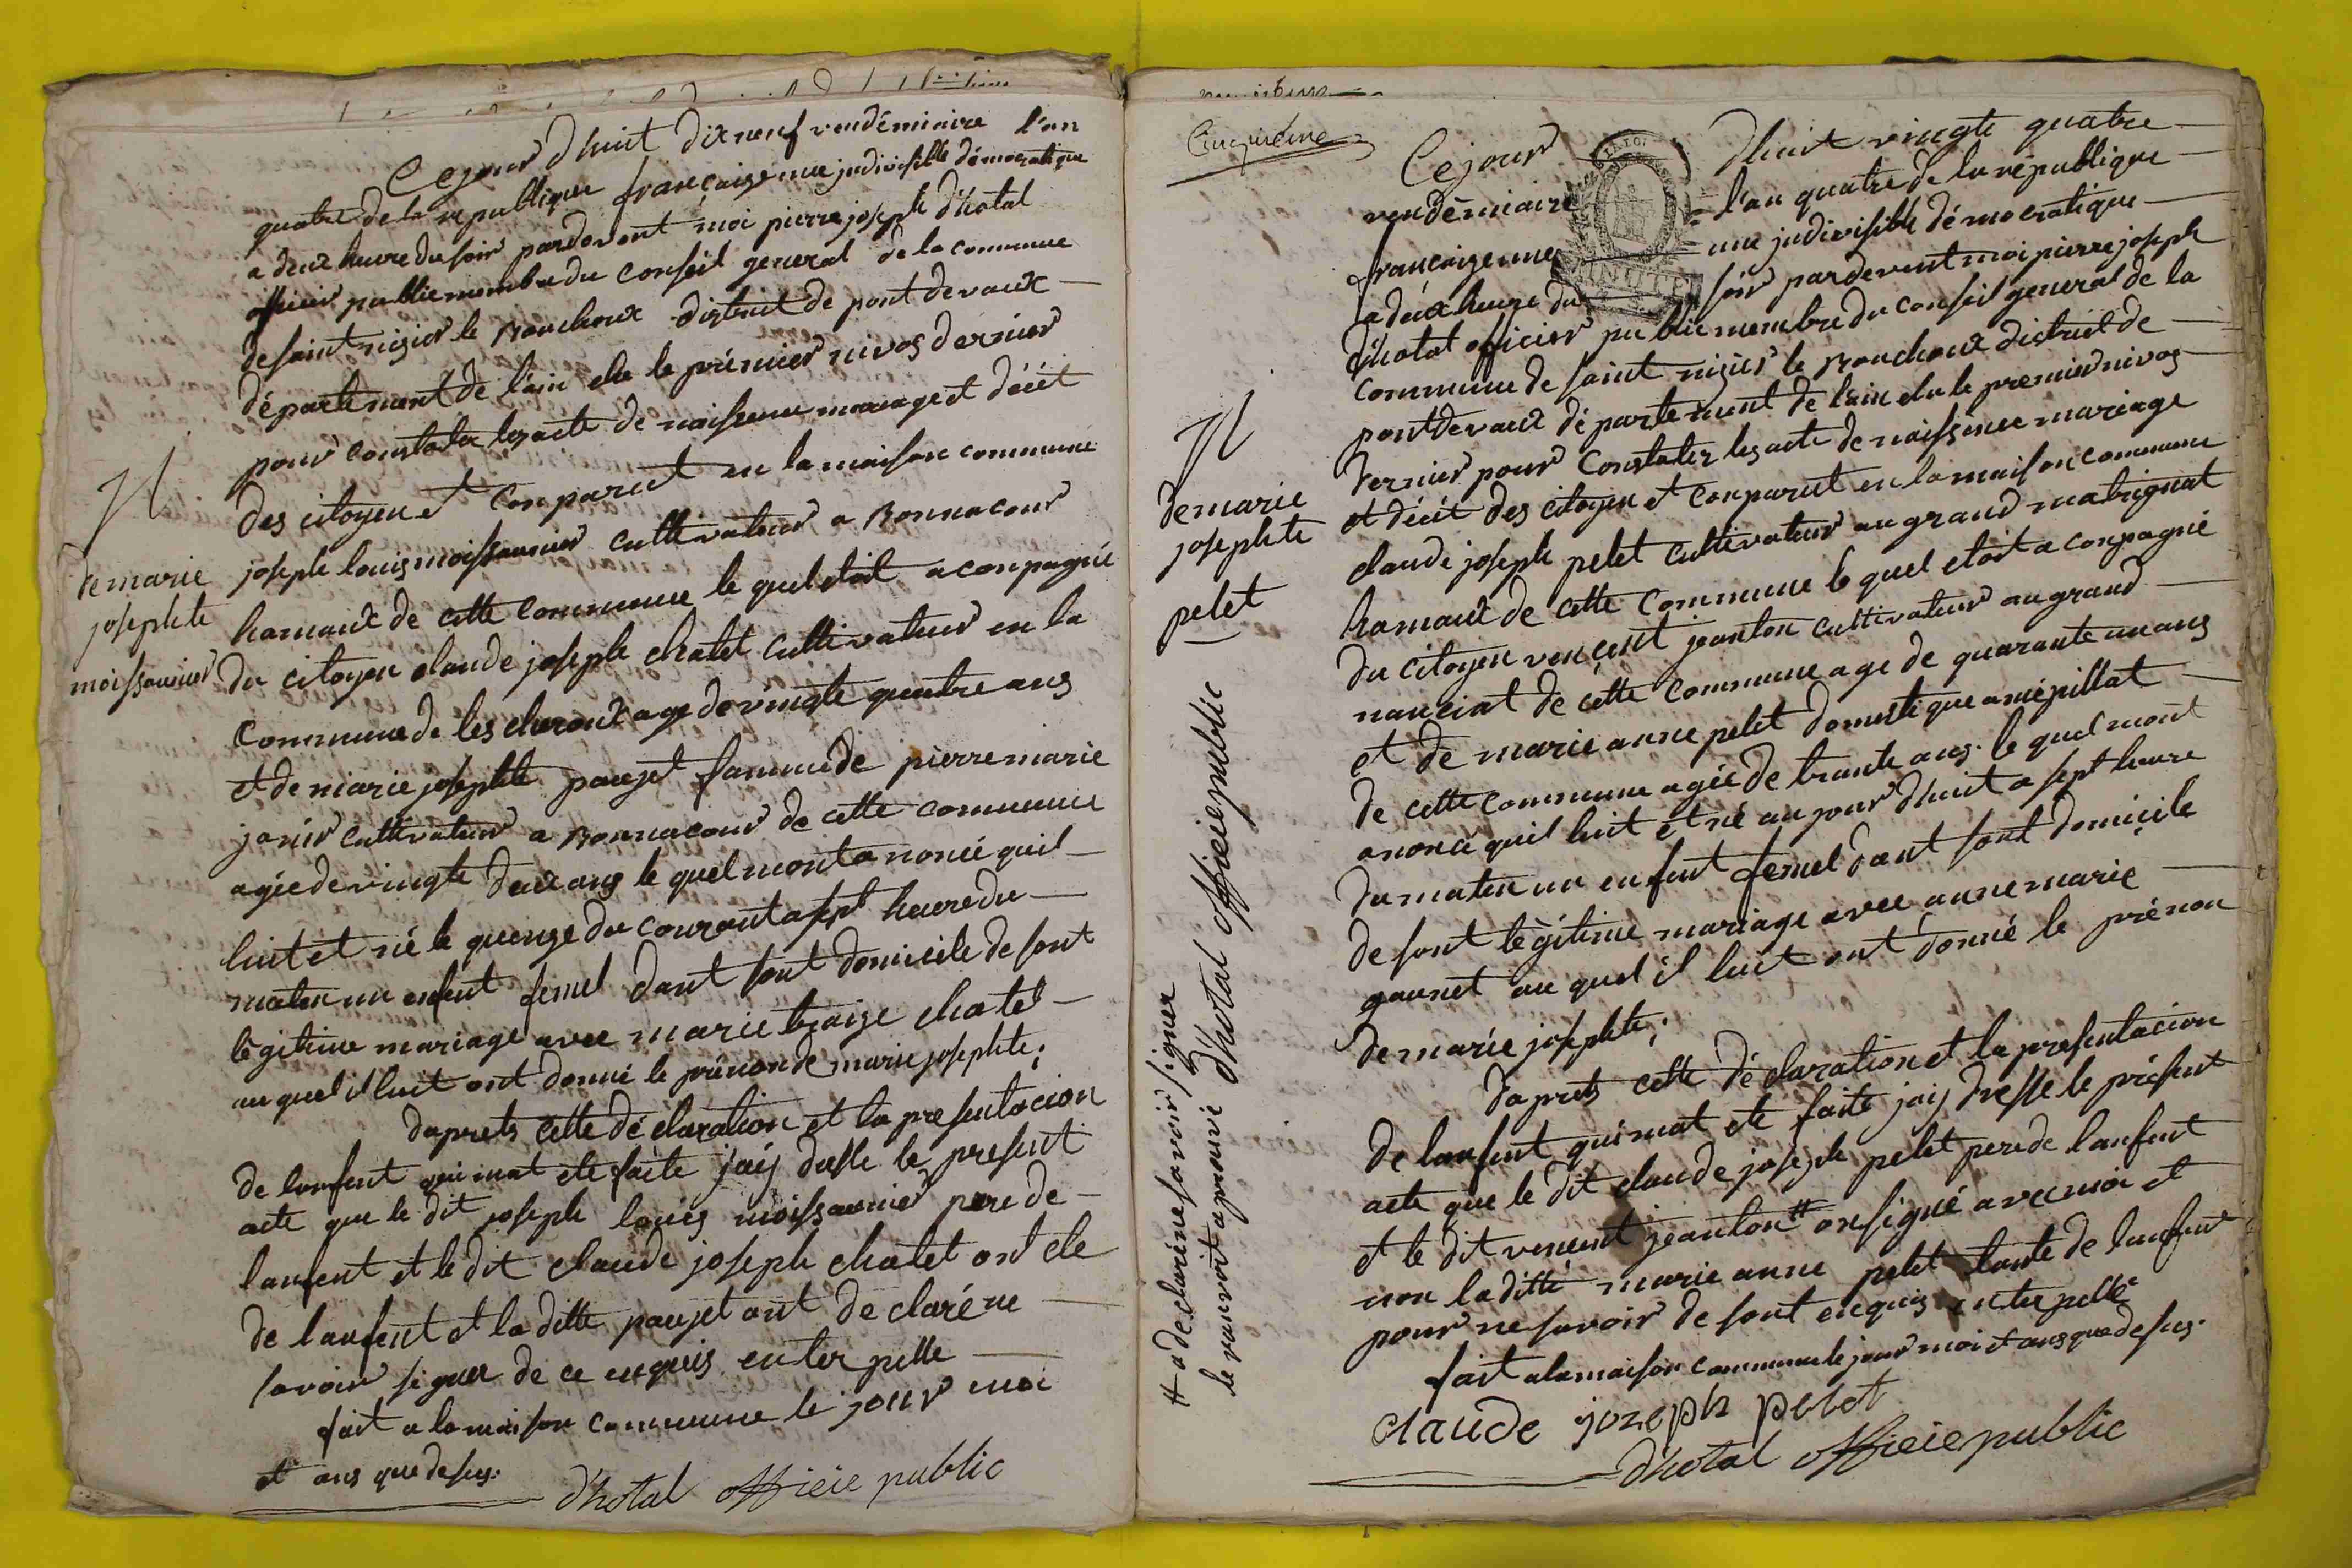 Ce jour d'huit dix neuf vendémiaire l'an
quatre de la republique françaize une jndivisible démocratique
a deux heure du soir pardevent moi pierre joseph d'hotal
officier public membre du conseil general de la commune
de saint nizier le Bouchoux district de pont de vaux
département de l'ain elu le prémier nivos dernier
pour constater les acte de naissence mariage et décét
des citoyen et conparut en la maison commune
joseph louis moissonnier cultivateur a Bonnacour
hamaux de cette commune le quel etoit a conpagnié
du citoyen claude joseph chatet cultivateur en la
commune de les cheroux age de vingte quatre ans
et de marie josephte paujet famme de pierre marie
janier cultivateur a Bonnacour de cette commune
agée de vingte deux ans le quel mont anoncé quil
luit et né le quenze du courant a sept heure du
maten un enfent femel dont sont domicile de sont
légitime mariage avec marie traize chatel
au quel il luit ont donné le prénon de marie josephte;
daprets cette déclaration et la presentacion
de lanfent qui mat ete faite jaij dressé le present
acte que le dit joseph louis moissonnier pere de
lanfent et le dit claude joseph chatet ont ele
de lanfent et la ditte paujet ont de claré ne
savoir signer de ce enquis enterpelle
fait a la maison commune le jour moi
et ans que desus.
d'hotal officie public
N
de marie
josephte
moissonnier
Cinquième
Ce jour d'huit vingte quatre
vendémiaire l'an quatre de la république
françaize une une jndivisible démocratique
a deux heure du soir pardevent moi pierre joseph
d'hotal officier public membre du conseil general de la
commune de saint nizier le Bouchoux district de
pont de vaux département de l'ain elu le premier nivos
dernier pour constater les acte de naissence mariage
et décét des citoyen et conparut en la maison commune
claude joseph pelet cultivateur au grand matrignat
hamaux de cette commune le quel etoit a conpagnié
du citoyen vençent jeanton cultivateur au grand
nanciat de cette commune age de quarante un ans
et de marie anne pelet domestique a mépillat
de cette commune agée de trante ans. le quel mont
anoncé quil luit et né au jour d'huit a sept heure
du maten un enfent femel dont sont domicile
de sont légitime mariage avec anne marie
gaunet au quel il luit ont donné le prénon
de marie josephte;
daprets cette déclaration et la presentacion
de lanfent qui mat ete faite jaij dressé le présent
acte que le dit claude joseph pelet pere de lanfent
et le dit vençent jeanton # on signé avec moi et
non la ditte marie anne pelet tante de lanfent
pour ne savoir de sont enquis enterpellé
fait a la maison commune le jour moi et ans que desus.
claude jozeph pelet
d'hotal officie public
N
de marie
josephte
pelet
# a de claré ne savoir signer
le ranvoit aprouvé d'hotal officie public